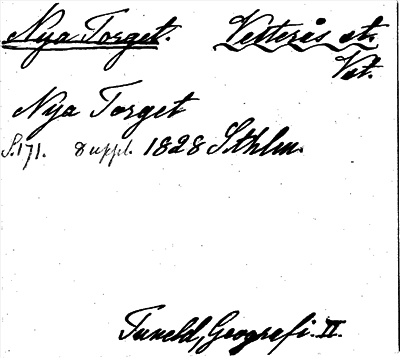 Nya Torget. Vetterås st.
Vst.
Nya Torget
S.171. 8 uppl. 1828 Sthlm.
Tuneld, Geografi. II.